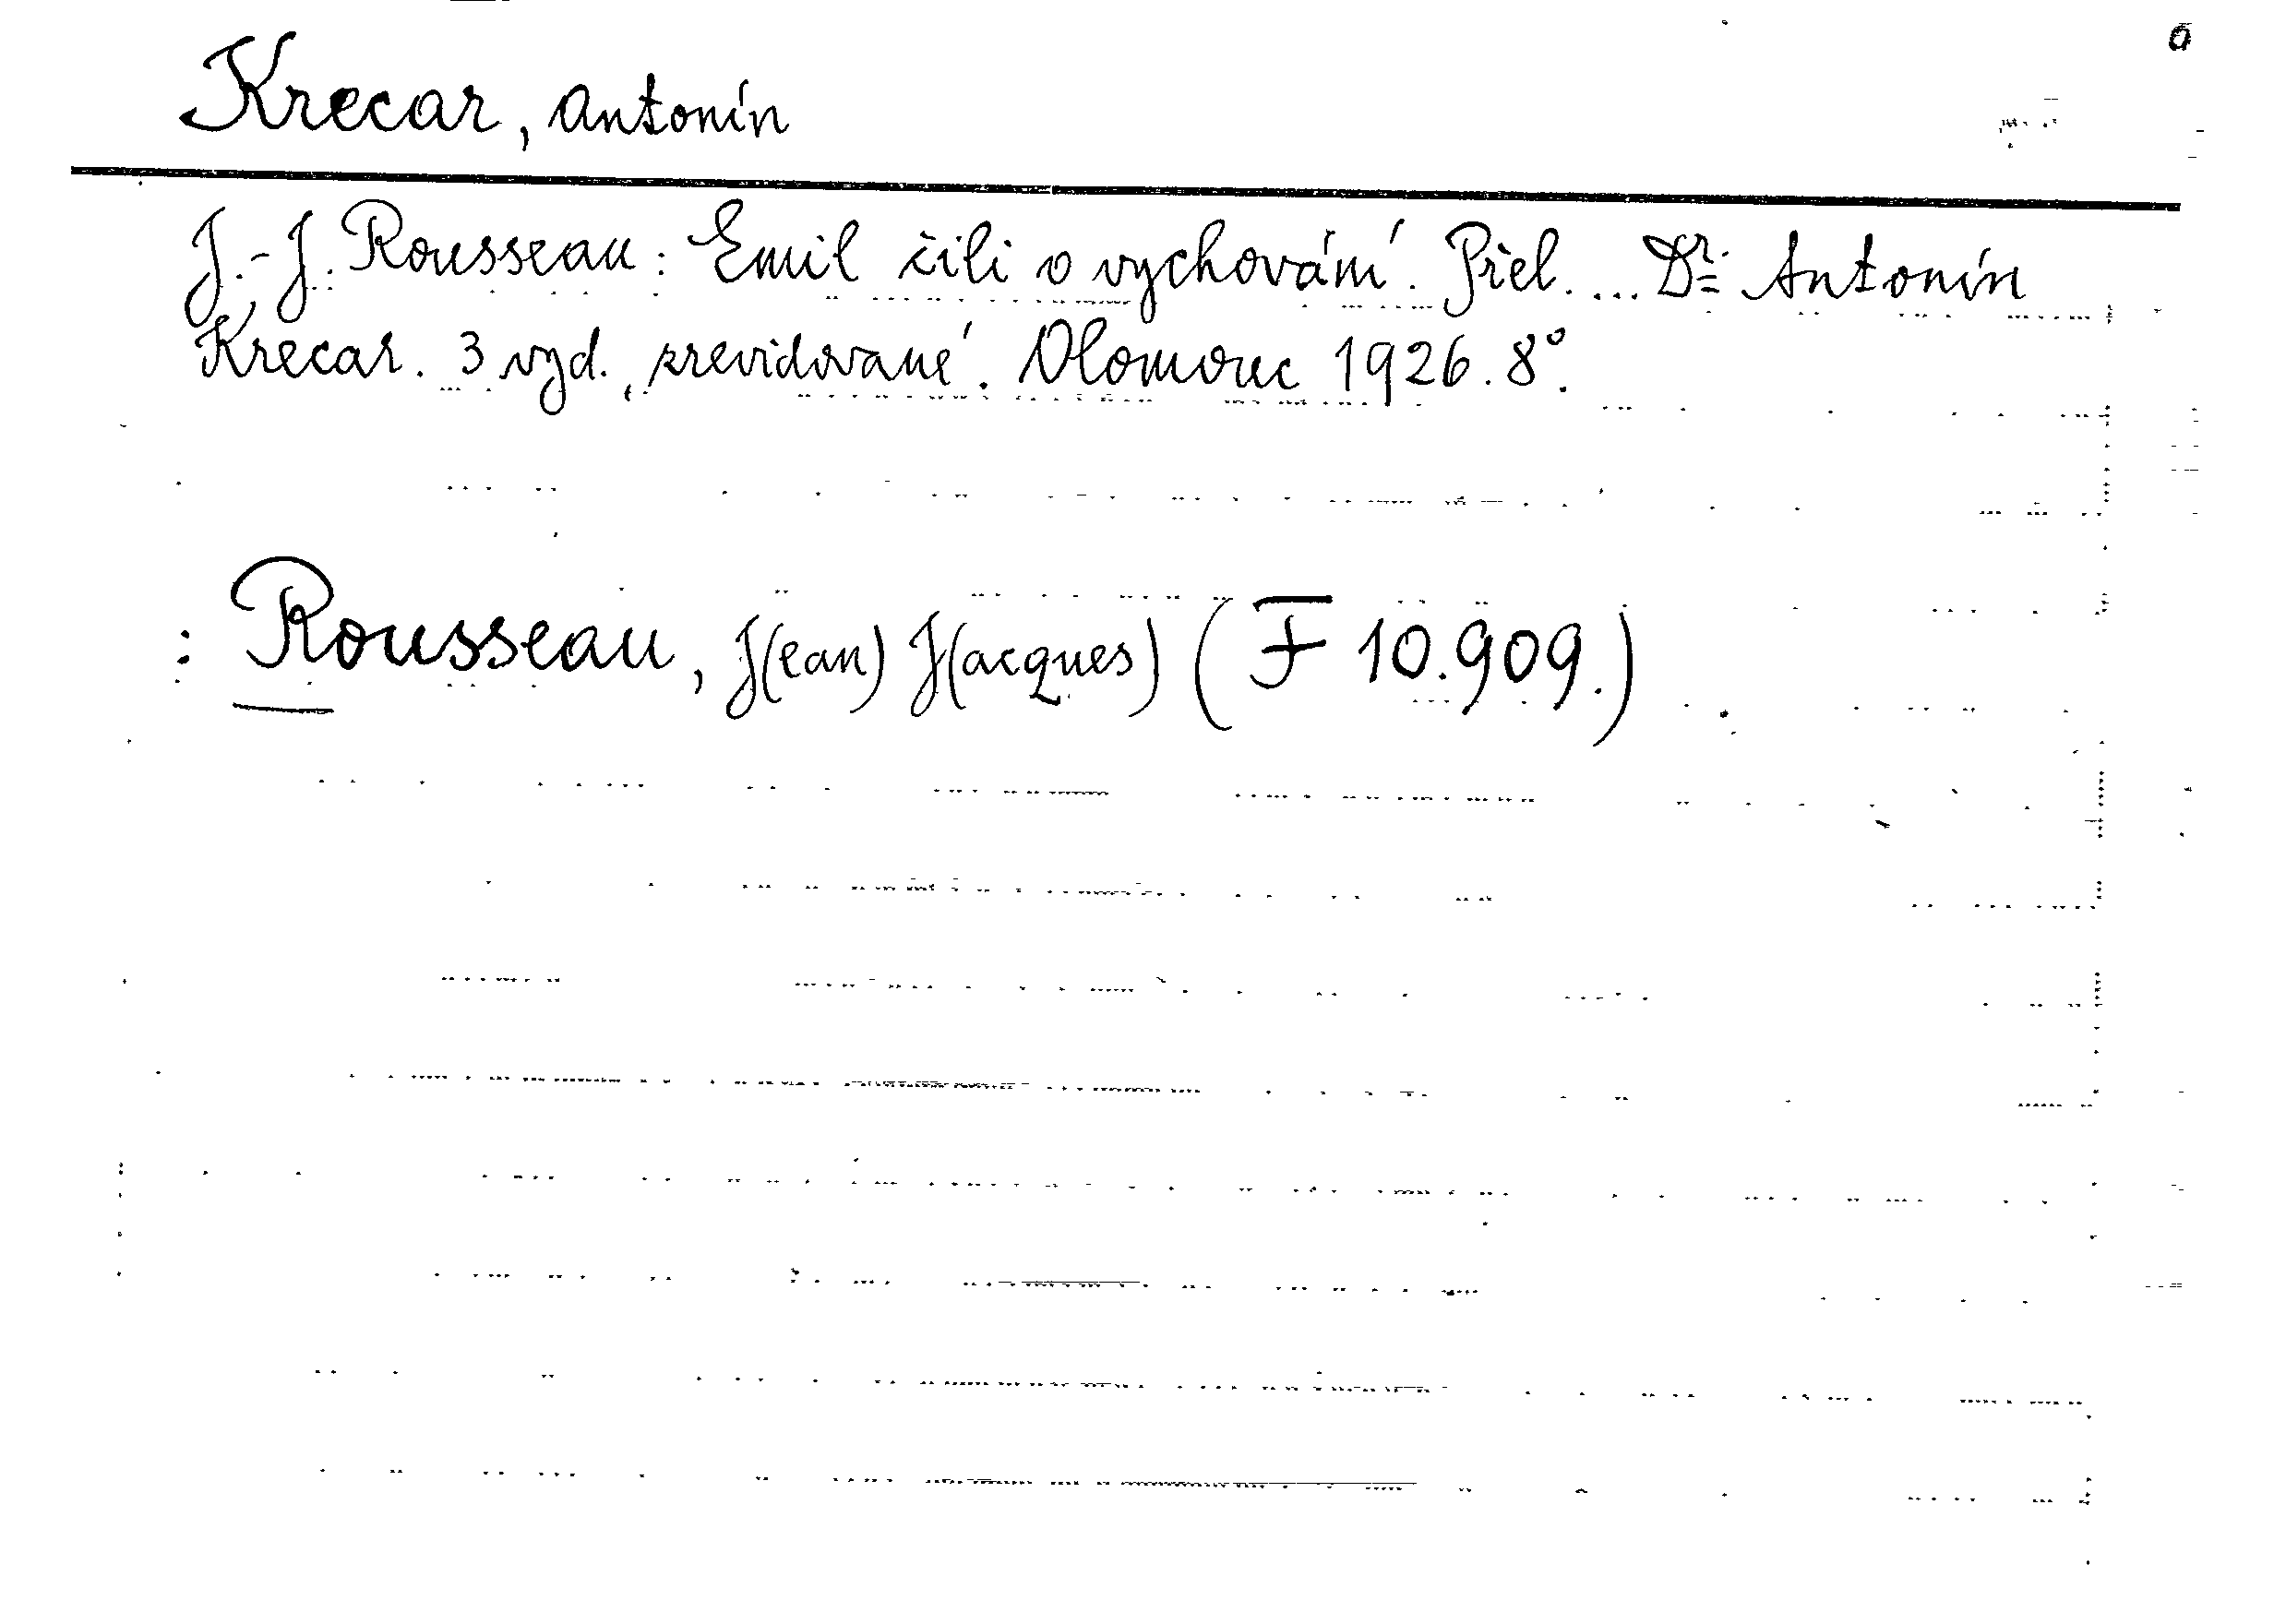 Krecar, Antonín
J.-J. Rousseau: Emil čili o vychování. Přel. ... Dr. Antonín
Krecar. 3 vyd., prevídované. Olomouc 1926. 8°.
: Rousseau, J(ean) J(acques) (F 10.909.)